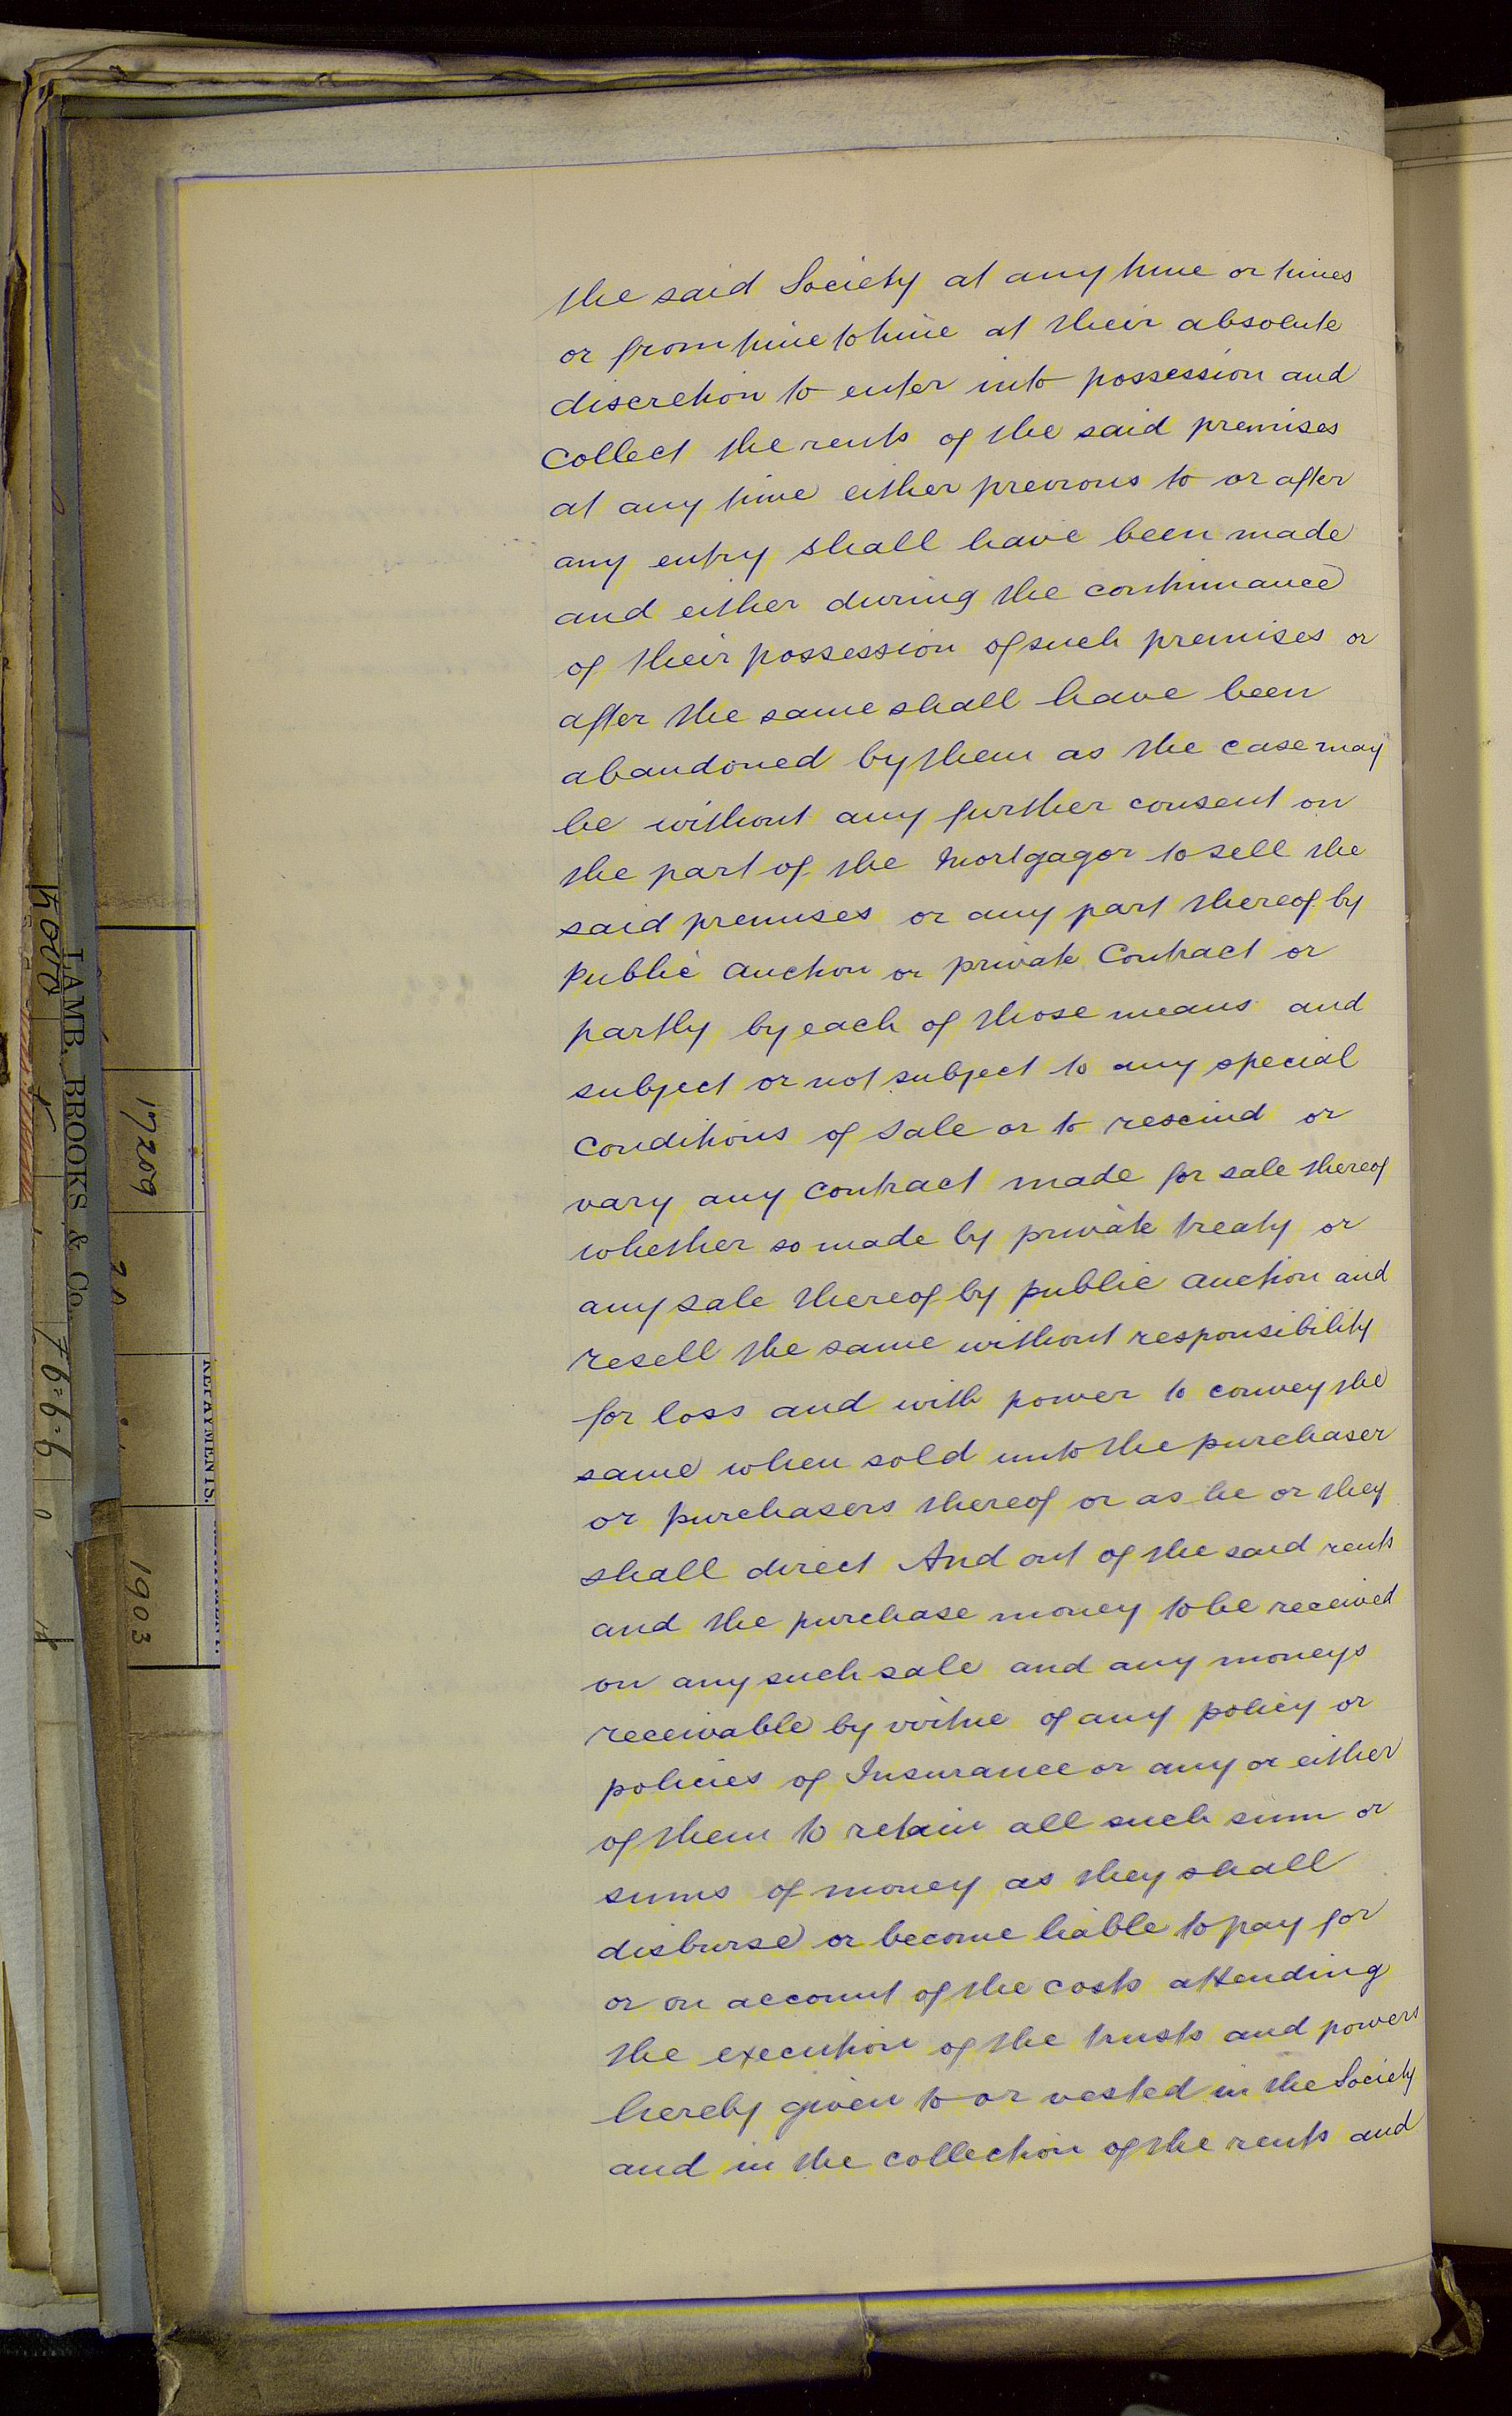 the said Society at any time or times
or from time to time at their absolute
discretion to enter into possession and
Collect the rents of the said premises
at any time either previous to or after
any entry shall have been made
and either during the continuance
of their possession of such premises or
after the same shall have been
abandoned by them as the case may
be without any further consent on
the part of the Mortgagor to sell the
said premises or any part thereof by
Public Auction or private Contract or
partly by each of those means and
subject or not subject to any special
Conditions of Sale or to rescind or
vary any contract made for sale thereof
whether so made by private treaty or
any sale thereof by public Auction and
resell the same without responsibility
for loss and with power to convey the
same when sold unto the purchaser
or purchasers thereof or as he or they
shall direct And out of the said rents
and the purchase money to be received
on any such sale and any moneys
receivable by virtue of any policy or
policies of Insurance or any or either
of them to retain all such sum or
sums of money as they shall
disburse or become liable to pay for
or on account of the costs attending
the execution of the trusts and powers
hereby given to or vested in the Society
and in the collection of the rents and
LAMB, BROOKS & Co.
76-6-6
17209
REPAYMENTS.
1903